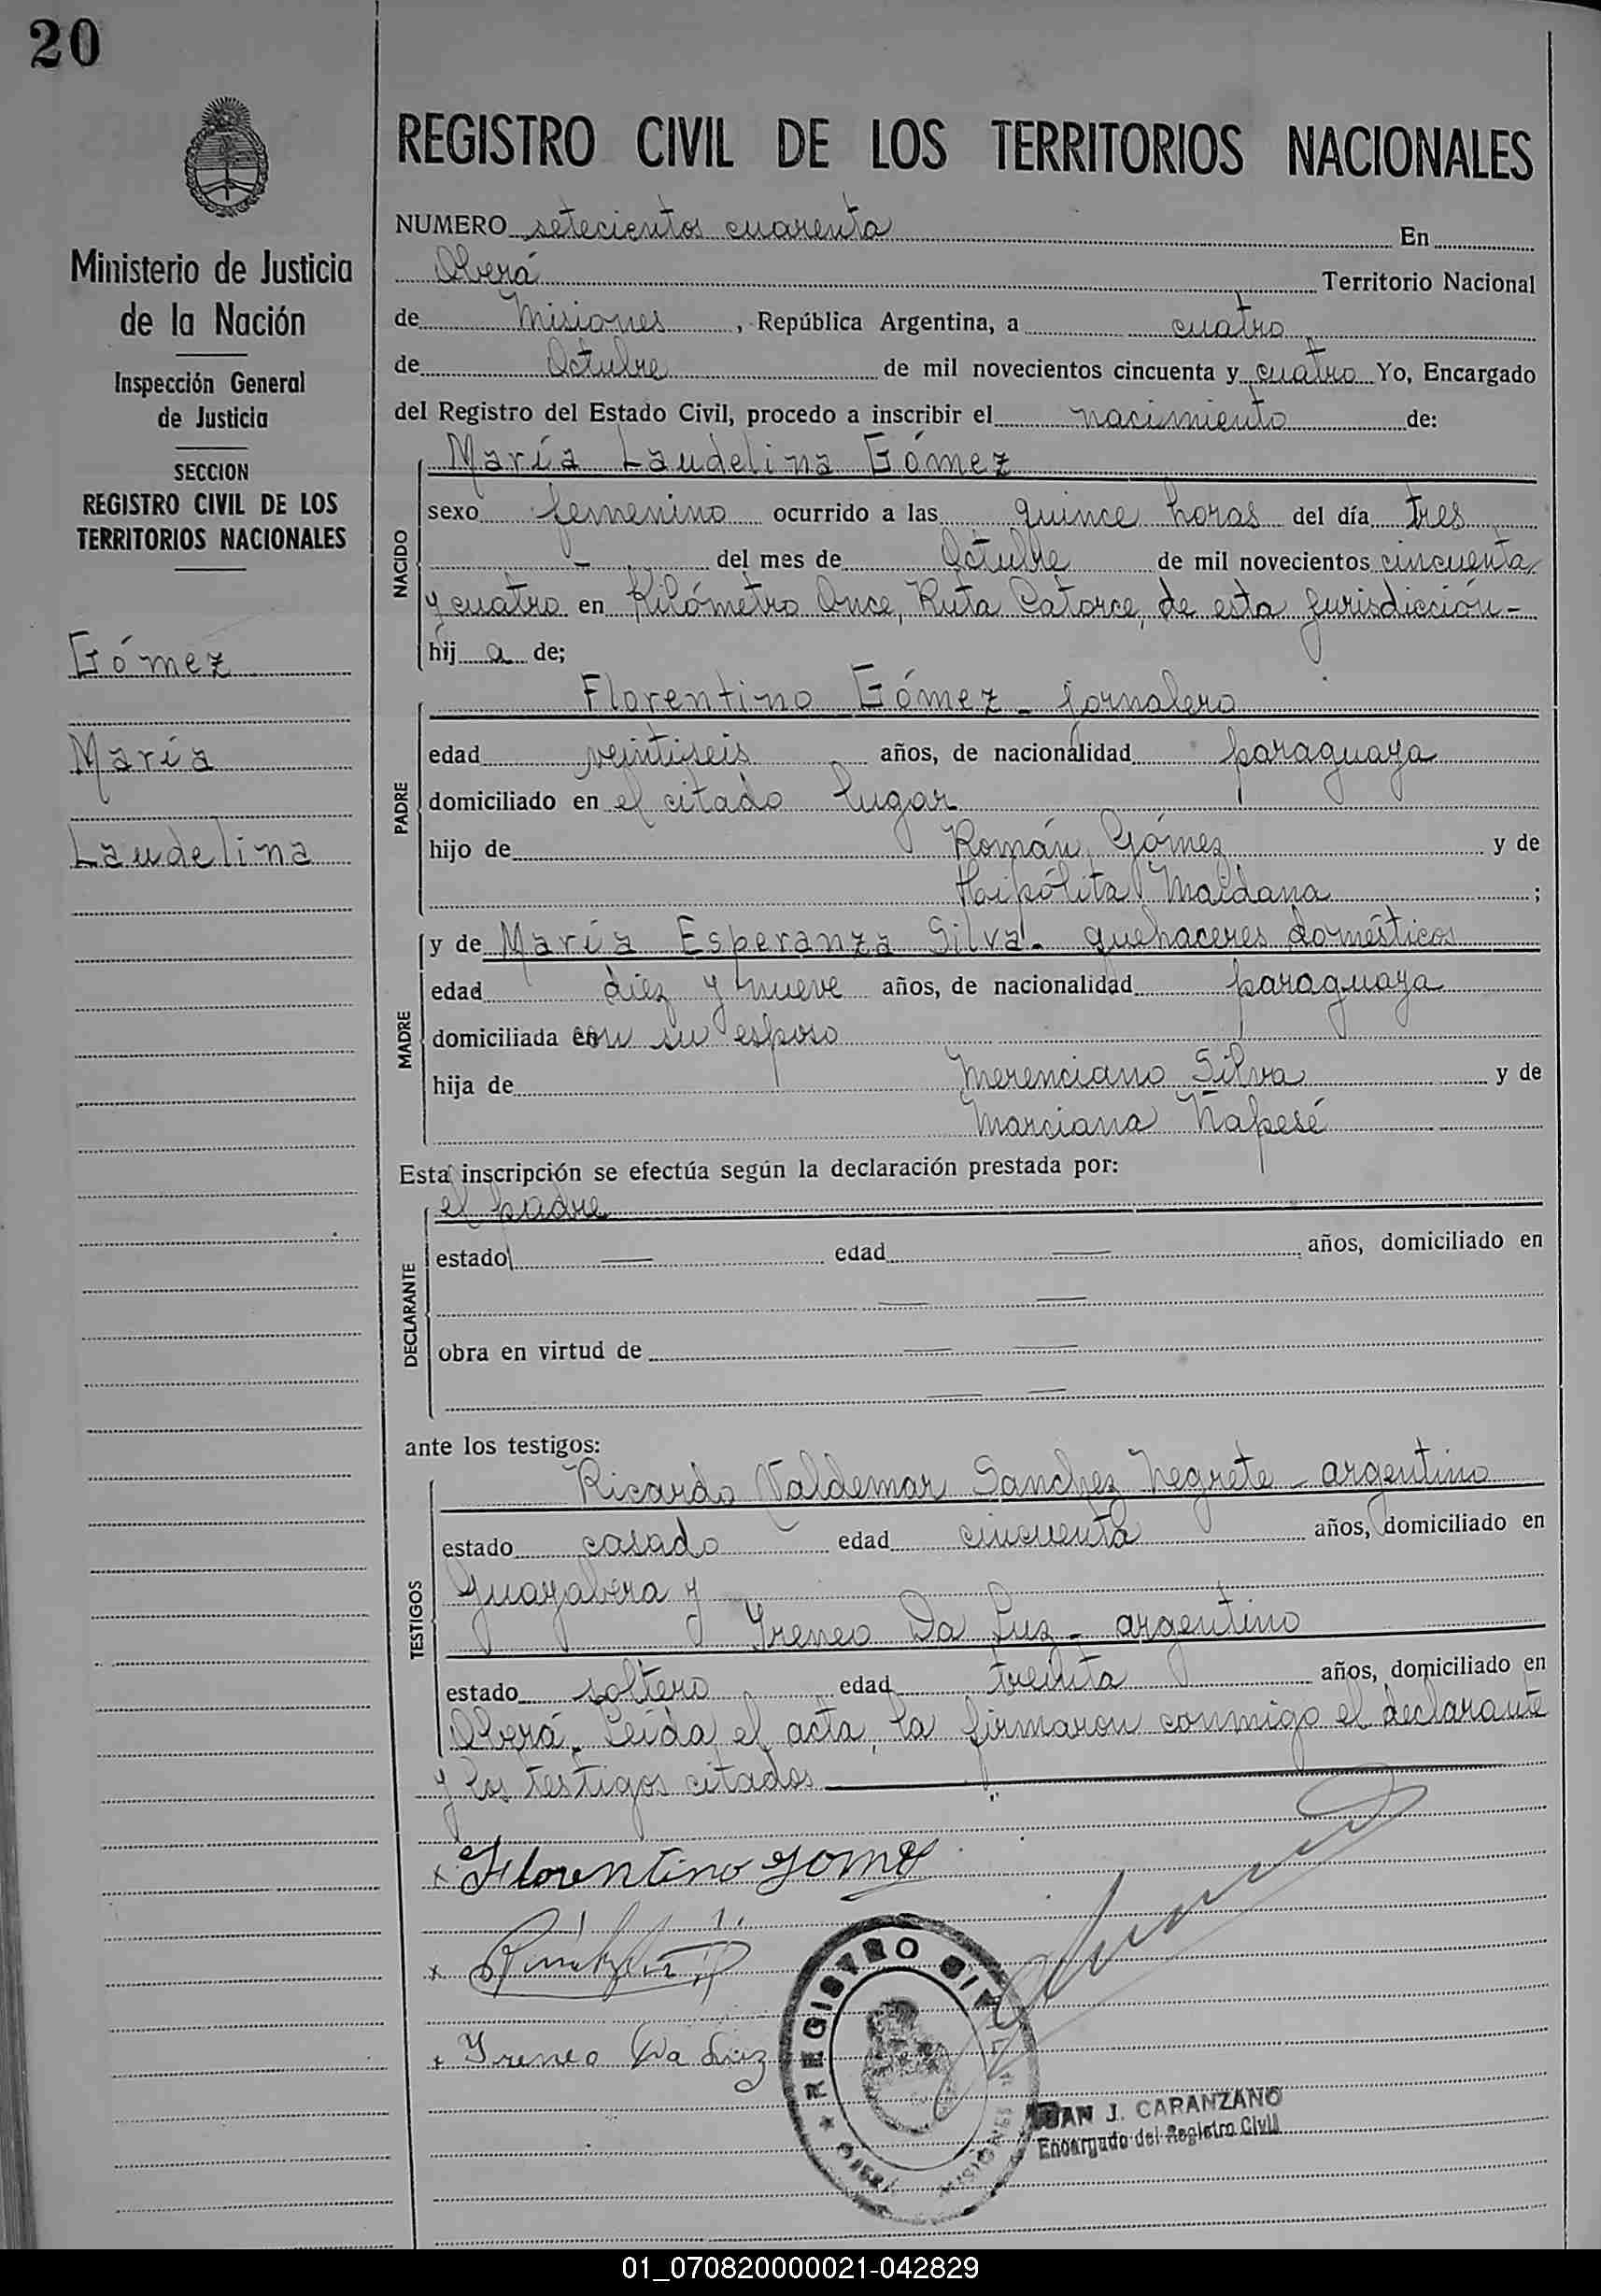 20
Ministerio de Justicia
de la Nación
Inspección General
de Justicia
SECCION
REGISTRO CIVIL DE LOS
TERRITORIOS NACIONALES
Gómez
María
Laudelina
REGISTRO CIVIL DE LOS TERRITORIOS NACIONALES
NUMERO setecientos cuarenta En
Oberá Territorio Nacional
de Misiones, República Argentina, a cuatro
de Octubre de mil novecientos cincuenta y cuatro Yo, Encargado
del Registro del Estado Civil, procedo a inscribir el nacimiento de:
María Laudelina Gómez
NACIDO
sexo femenino ocurrido a las quince horas del día tres
- del mes de Octubre de mil novecientos cincuenta
y cuatro en Kilómetro Once, Ruta Catorce, de esta jurisdicción-
hij a de;
Florentino Gómez - jornalero
PADRE
edad veintiseis años, de nacionalidad paraguaya
domiciliado en el citado lugar
hijo de Román Gómez y de
Hipólita Maidana;
MADRE
y de María Esperanza Silva - quehaceres domésticos
edad diez y nueve años, de nacionalidad paraguaya
domiciliada con su esposo
hija de Merenciano Silva y de
Marciana Ñapesé
Esta inscripción se efectúa según la declaración prestada por:
el padre
DECLARANTE
estado — edad — años, domiciliado en
— —
obra en virtud de — —
— —
ante los testigos:
Ricardo Valdemar Sanchez Negrete - argentino
TESTIGOS
estado casado edad cincuenta años, domiciliado en
Guayabera y
Ireneo Da Luz - argentino
estado soltero edad treinta años, domiciliado en
Oberá. Leída el acta, la firmaron conmigo el declarante
y los testigos citados
x Florentino gomez
x
x Ireneo Da Luz
REGISTRO CIVIL
OBERA MISIONES
JUAN J. CARANZANO
Encargado del Registro Civil
01_070820000021-042829